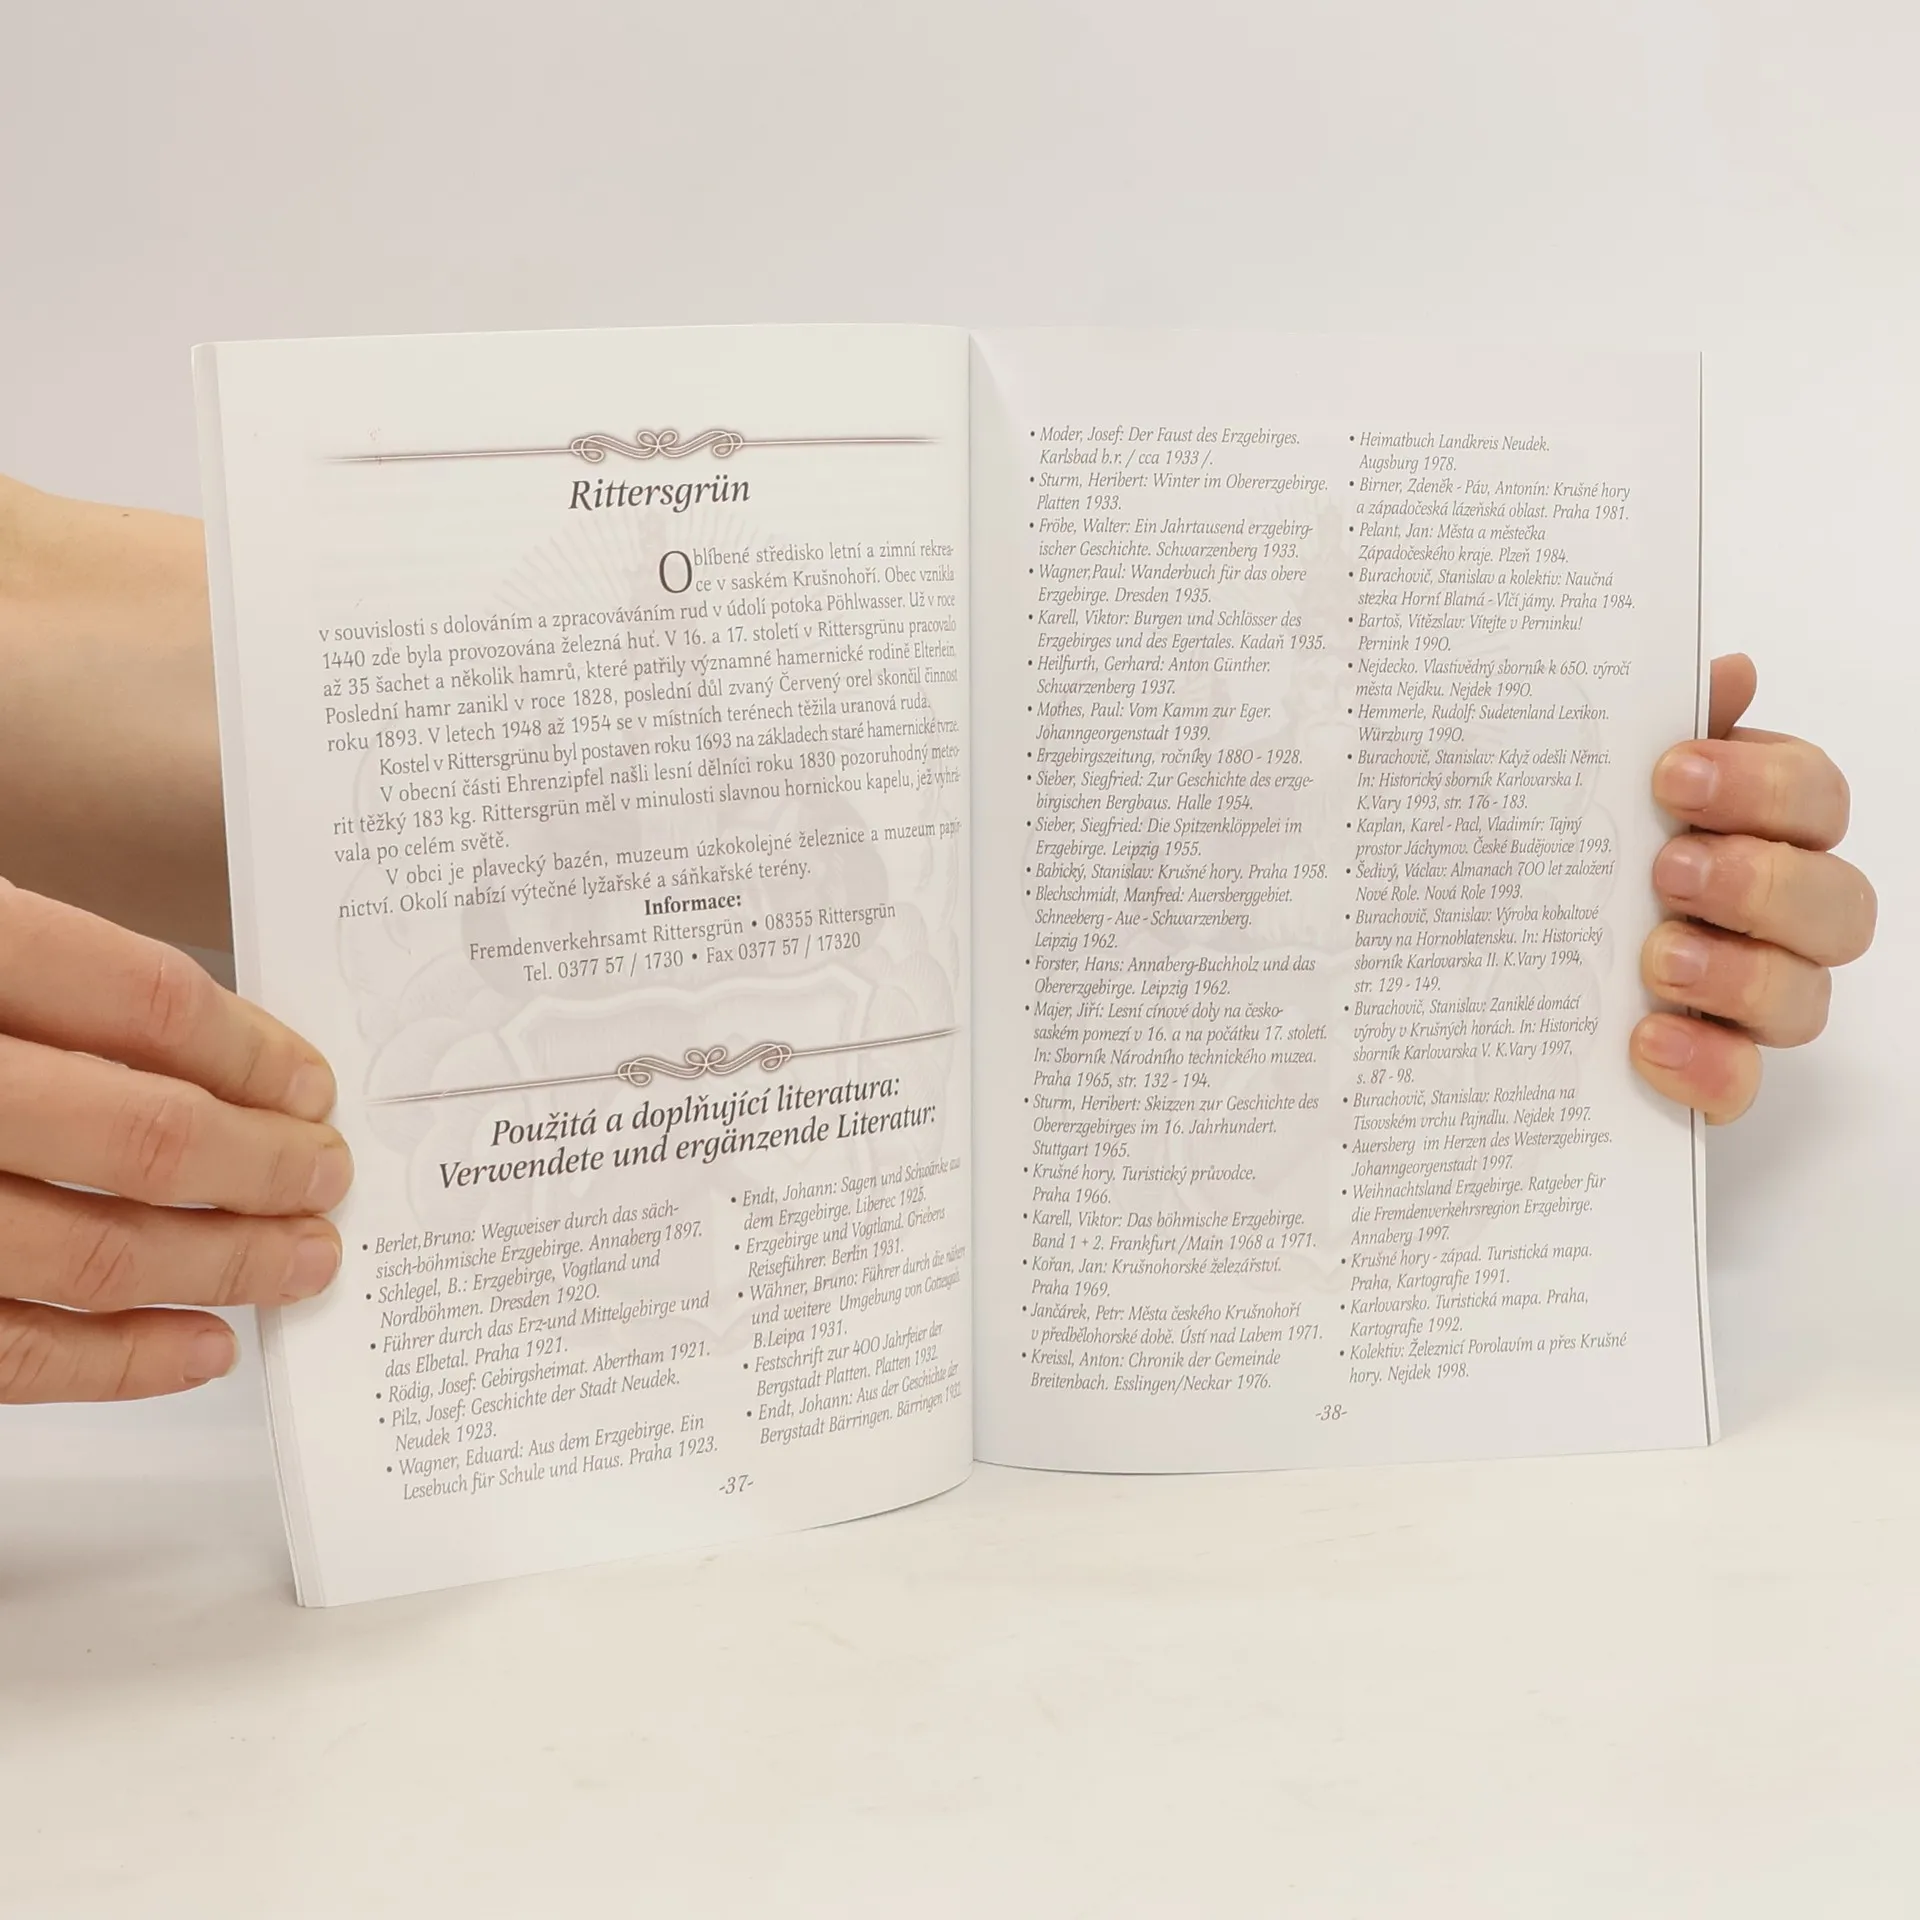 Rittersgrün
Oblíbené středisko letní a zimní rekrea-
ce v saském Krušnohoří. Obec vznikla
v souvislosti s dolováním a zpracováváním rud v údolí potoka Pöhlwasser. Už v roce
1440 zde byla provozována železná huť. V 16. a 17. století v Rittersgrünu pracovalo
až 35 šachet a několik hamrů, které patřily významné hamernické rodině Elterlein.
Poslední hamr zanikl v roce 1828, poslední důl zvaný Červený orel skončil činnost
roku 1893. V letech 1948 až 1954 se v místních terénech těžila uranová ruda.
Kostel v Rittersgrünu byl postaven roku 1693 na základech staré hamernické tvrze.
V obecní části Ehrenzipfel našli lesní dělníci roku 1830 pozoruhodný meteo-
rit těžký 183 kg. Rittersgrün měl v minulosti slavnou hornickou kapelu, jež vyhrá-
vala po celém světě.
V obci je plavecký bazén, muzeum úzkokolejné železnice a muzeum papír-
nictví. Okolí nabízí výtečné lyžařské a sáňkařské terény.
Informace:
Fremdenverkehrsamt Rittersgrün • 08355 Rittersgrün
Tel. 0377 57 / 1730 • Fax 0377 57 / 17320
Použitá a doplňující literatura:
Verwendete und ergänzende Literatur:
• Berlet,Bruno: Wegweiser durch das säch-
sisch-böhmische Erzgebirge. Annaberg 1897.
• Schlegel, B.: Erzgebirge, Vogtland und
Nordböhmen. Dresden 1920.
• Führer durch das Erz-und Mittelgebirge und
das Elbetal. Praha 1921.
• Rödig, Josef: Gebirgsheimat. Abertham 1921.
• Pilz, Josef: Geschichte der Stadt Neudek.
Neudek 1923.
• Wagner, Eduard: Aus dem Erzgebirge. Ein
Lesebuch für Schule und Haus. Praha 1923.
• Endt, Johann: Sagen und Schwänke aus
dem Erzgebirge. Liberec 1925.
• Erzgebirge und Vogtland. Griebens
Reiseführer. Berlin 1931.
• Wähner, Bruno: Führer durch die nähere
und weitere Umgebung von Gottesgab.
B.Leipa 1931.
• Festschrift zur 400 Jahrfeier der
Bergstadt Platten. Platten 1932.
• Endt, Johann: Aus der Geschichte der
Bergstadt Bärringen. Bärringen 1932.
-37-
• Moder, Josef: Der Faust des Erzgebirges.
Karlsbad b.r. / cca 1933 /.
• Sturm, Heribert: Winter im Obererzgebirge.
Platten 1933.
• Fröbe, Walter: Ein Jahrtausend erzgebirg-
ischer Geschichte. Schwarzenberg 1933.
• Wagner,Paul: Wanderbuch für das obere
Erzgebirge. Dresden 1935.
• Karell, Viktor: Burgen und Schlösser des
Erzgebirges und des Egertales. Kadaň 1935.
• Heilfurth, Gerhard: Anton Günther.
Schwarzenberg 1937.
• Mothes, Paul: Vom Kamm zur Eger.
Johanngeorgenstadt 1939.
• Erzgebirgszeitung, ročníky 1880 - 1928.
• Sieber, Siegfried: Zur Geschichte des erzge-
birgischen Bergbaus. Halle 1954.
• Sieber, Siegfried: Die Spitzenklöppelei im
Erzgebirge. Leipzig 1955.
• Babický, Stanislav: Krušné hory. Praha 1958.
• Blechschmidt, Manfred: Auersberggebiet.
Schneeberg - Aue - Schwarzenberg.
Leipzig 1962.
• Forster, Hans: Annaberg-Buchholz und das
Obererzgebirge. Leipzig 1962.
• Majer, Jiří: Lesní cínové doly na česko-
saském pomezí v 16. a na počátku 17. století.
In: Sborník Národního technického muzea.
Praha 1965, str. 132 - 194.
• Sturm, Heribert: Skizzen zur Geschichte des
Obererzgebirges im 16. Jahrhundert.
Stuttgart 1965.
• Krušné hory. Turistický průvodce.
Praha 1966.
• Karell, Viktor: Das böhmische Erzgebirge.
Band 1 + 2. Frankfurt /Main 1968 a 1971.
• Kořan, Jan: Krušnohorské železářství.
Praha 1969.
• Jančárek, Petr: Města českého Krušnohoří
v předbělohorské době. Ústí nad Labem 1971.
• Kreissl, Anton: Chronik der Gemeinde
Breitenbach. Esslingen/Neckar 1976.
• Heimatbuch Landkreis Neudek.
Augsburg 1978.
• Birner, Zdeněk - Páv, Antonín: Krušné hory
a západočeská lázeňská oblast. Praha 1981.
• Pelant, Jan: Města a městečka
Západočeského kraje. Plzeň 1984.
• Burachovič, Stanislav a kolektiv: Naučná
stezka Horní Blatná - Vlčí jámy. Praha 1984.
• Bartoš, Vítězslav: Vítejte v Perninku!
Pernink 1990.
• Nejdecko. Vlastivědný sborník k 650. výročí
města Nejdku. Nejdek 1990.
• Hemmerle, Rudolf: Sudetenland Lexikon.
Würzburg 1990.
• Burachovič, Stanislav: Když odešli Němci.
In: Historický sborník Karlovarska I.
K.Vary 1993, str. 176 - 183.
• Kaplan, Karel - Pacl, Vladimír: Tajný
prostor Jáchymov. České Budějovice 1993.
• Šedivý, Václav: Almanach 700 let založení
Nové Role. Nová Role 1993.
• Burachovič, Stanislav: Výroba kobaltové
barvy na Hornoblatensku. In: Historický
sborník Karlovarska II. K.Vary 1994,
str. 129 - 149.
• Burachovič, Stanislav: Zaniklé domácí
výroby v Krušných horách. In: Historický
sborník Karlovarska V. K.Vary 1997,
s. 87 - 98.
• Burachovič, Stanislav: Rozhledna na
Tisovském vrchu Pajndlu. Nejdek 1997.
• Auersberg im Herzen des Westerzgebirges.
Johanngeorgenstadt 1997.
• Weihnachtsland Erzgebirge. Ratgeber für
die Fremdenverkehrsregion Erzgebirge.
Annaberg 1997.
• Krušné hory - západ. Turistická mapa.
Praha, Kartografie 1991.
• Karlovarsko. Turistická mapa. Praha,
Kartografie 1992.
• Kolektiv: Železnicí Porolavím a přes Krušné
hory. Nejdek 1998.
-38-